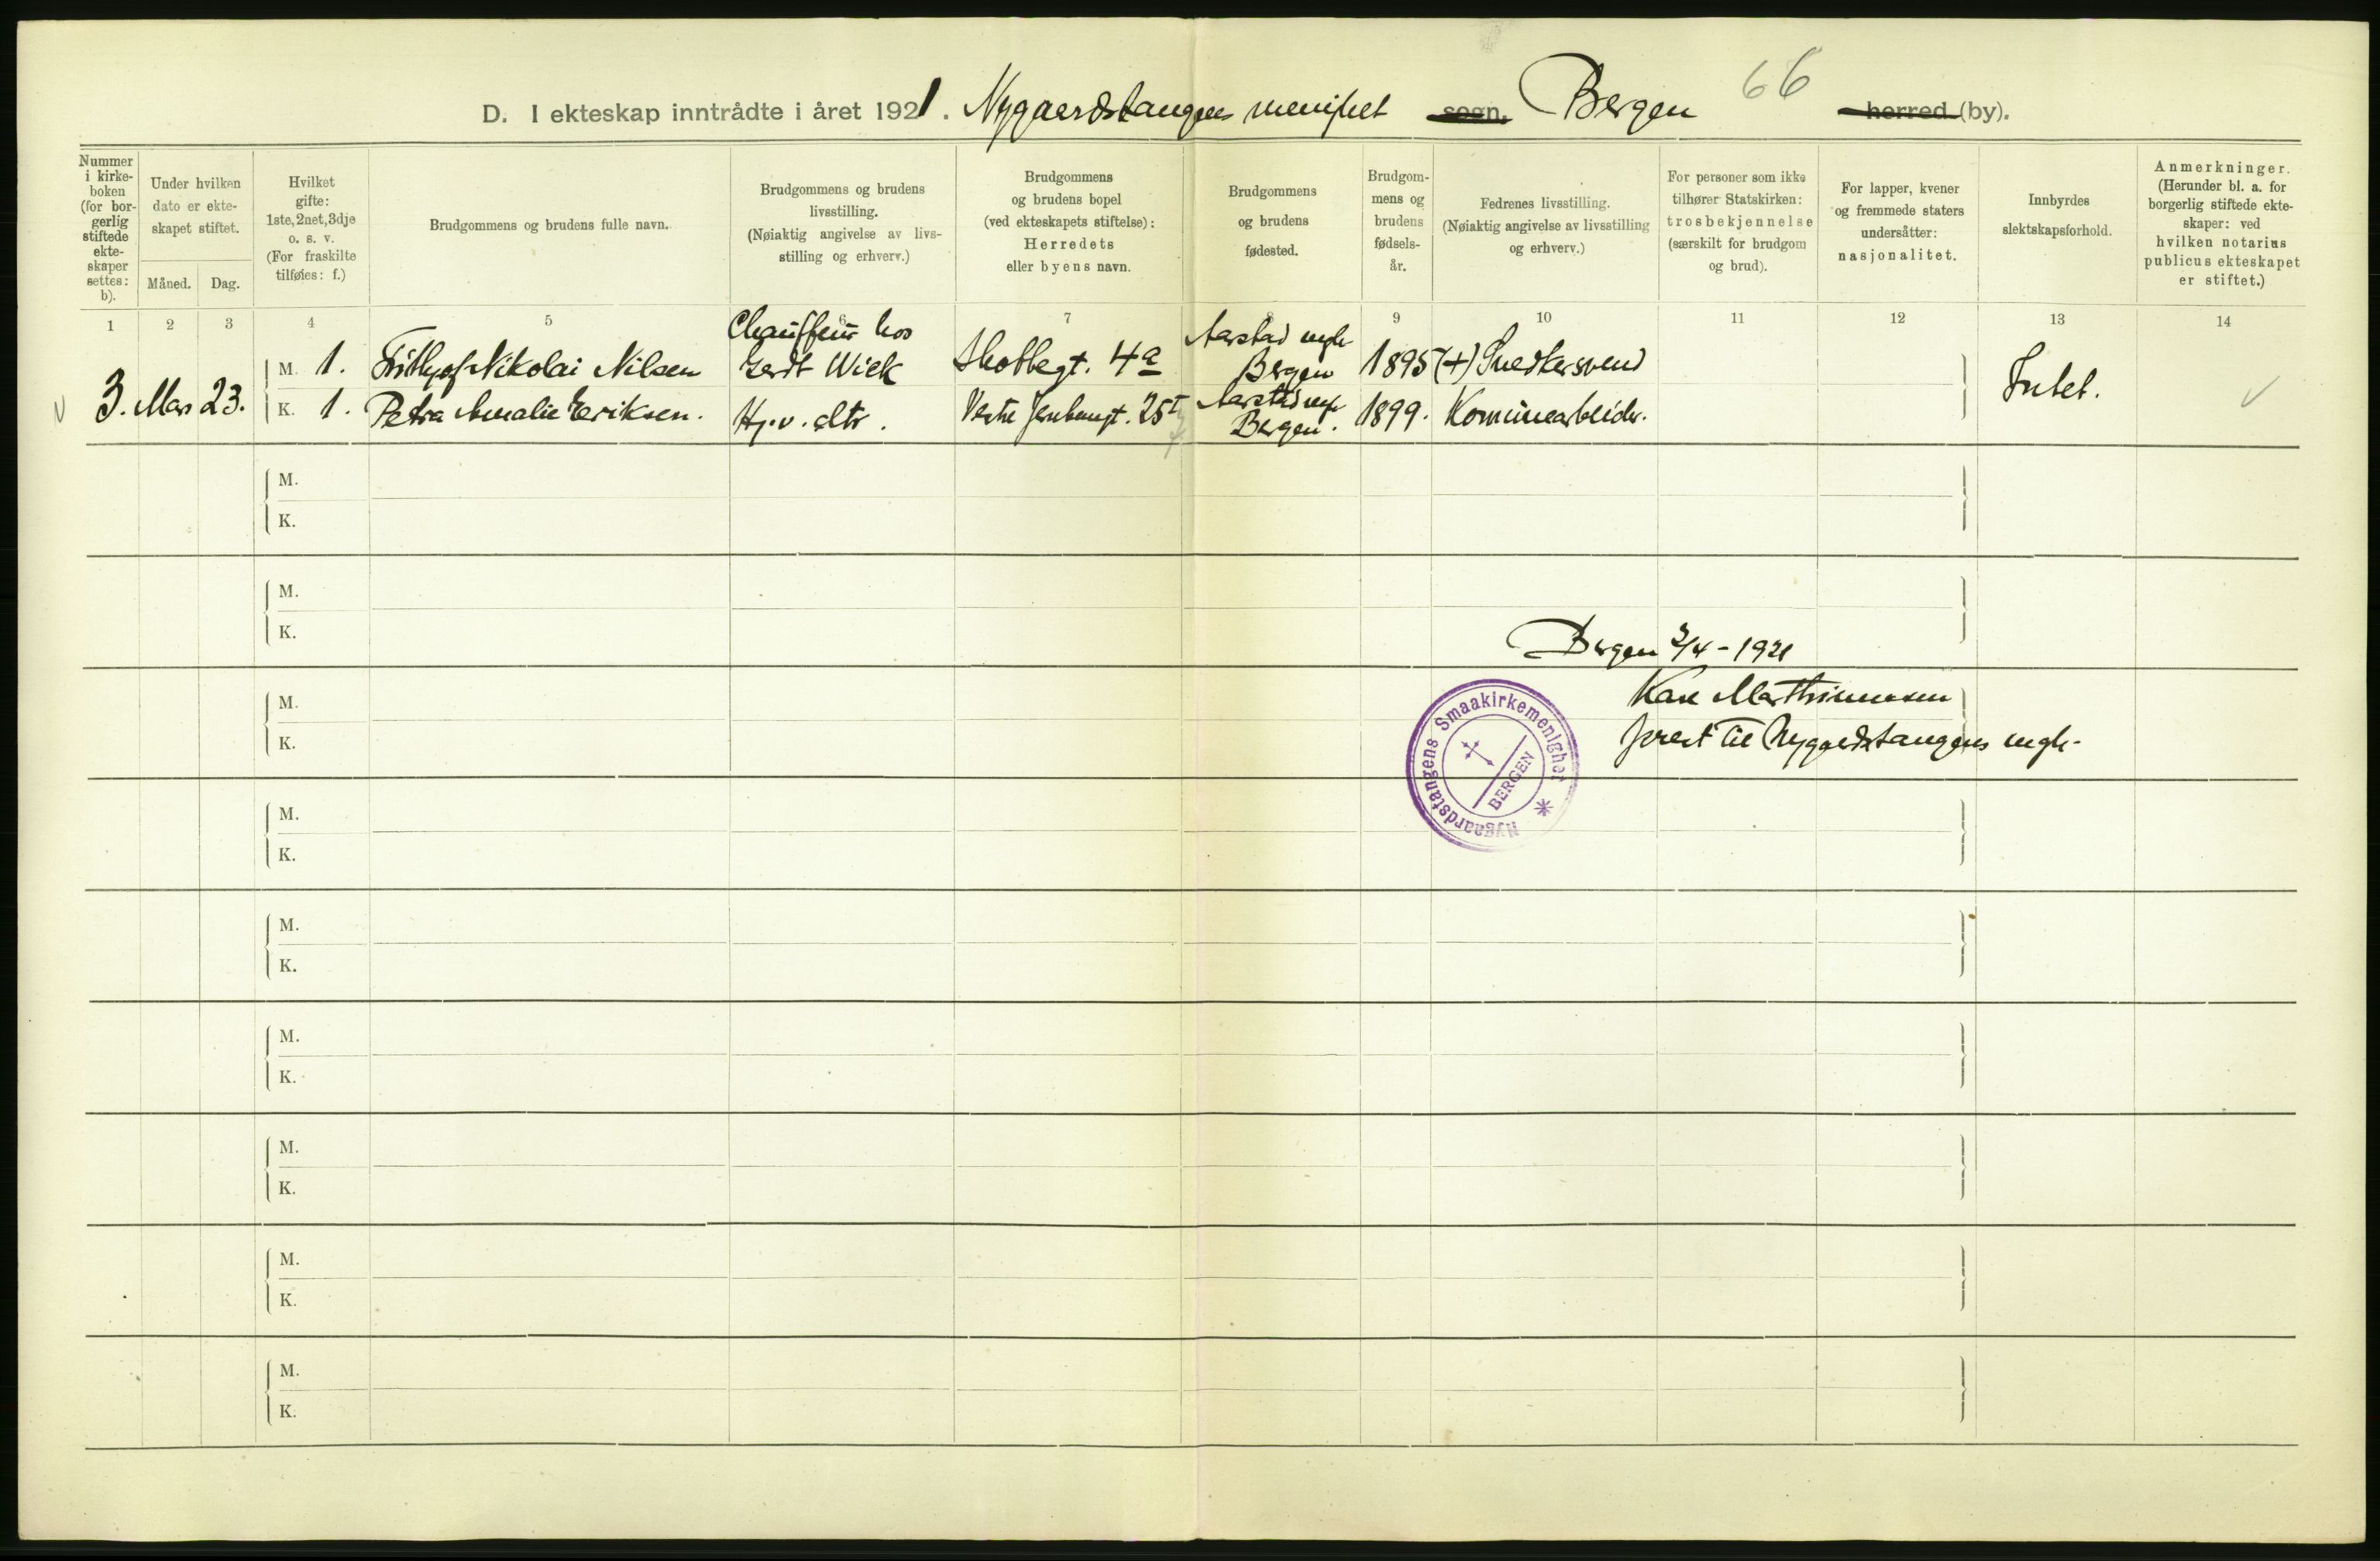 66
D. I ekteskap inntrådte i året 1921. Nygaardstangens menighet sogn. Bergen herred (by).
Nummer
i kirke-
boken
(for bor-
gerlig
stiftede
ekte-
skaper
settes:
b).
Under hvilken
dato er ekte-
skapet stiftet.
Måned. Dag.
Hvilket
gifte:
1ste, 2net, 3dje
o. s. v.
(For fraskilte
tilføies: f.)
Brudgommens og brudens fulle navn.
Brudgommens og brudens
livsstilling.
(Nøiaktig angivelse av livs-
stilling og erhverv.)
Brudgommens
og brudens bopel
(ved ekteskapets stiftelse):
Herredets
eller byens navn.
Brudgommens
og brudens
fødested.
Brudgom-
mens og
brudens
fødsels-
år.
Fedrenes livsstilling.
(Nøiaktig angivelse av livsstilling
og erhverv.)
For personer som ikke
tilhører Statskirken:
trosbekjennelse
(særskilt for brudgom
og brud).
For lapper, kvener
og fremmede staters
undersåtter:
nasjonalitet.
Innbyrdes
slektskapsforhold.
Anmerkninger.
(Herunder bl. a. for
borgerlig stiftede ekte-
skaper: ved
hvilken notarius
publicus ekteskapet
er stiftet.)
1 2 3 4 5 6 7 8 9 10 11 12 13 14
3. Mars 23.
M. 1. Frithjof Nikolai Nilsen
Chauffeur hos
Gerdt Wiek
Skottegt. 4a
Aarstad mgh
Bergen
1895 (+) Snedkersvend
K. 1. Petra Amalie Eriksen.
Hj. v. dtr.
Vestre Jernbanegt. 25 I
Aarstad mgh
Bergen.
1899. Komunearbeider.
Intet.
M.
K.
M.
K.
Bergen 2/4 - 1921
M.
K.
prest til Nygaardstangens mgh.
Nygaardstangens Smaakirkemenighet
BERGEN
M.
K.
M.
K.
M.
K.
M.
K.
M.
K.
M.
K.